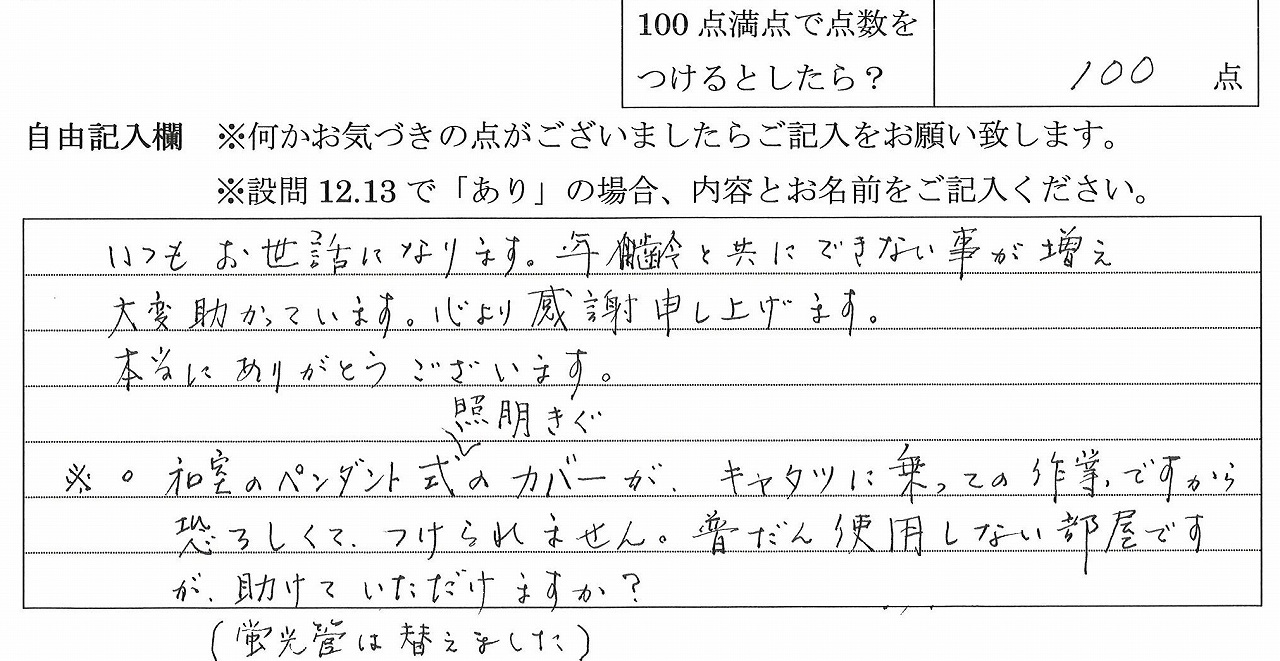 100点満点で点数を
つけるとしたら？
100 点
自由記入欄 ※何かお気づきの点がございましたらご記入をお願い致します。
※設問12.13で「あり」の場合、内容とお名前をご記入ください。
いつもお世話になります。年齢と共にできない事が増え
大変助かっています。心より感謝申し上げます。
本当にありがとうございます。
照明きぐ
※○和室のペンダント式のカバーが、キャタツに乗っての作業、ですから
恐ろしくて、つけられません。普だん使用しない部屋です
が、助けていただけますか？
(蛍光管は替えました)